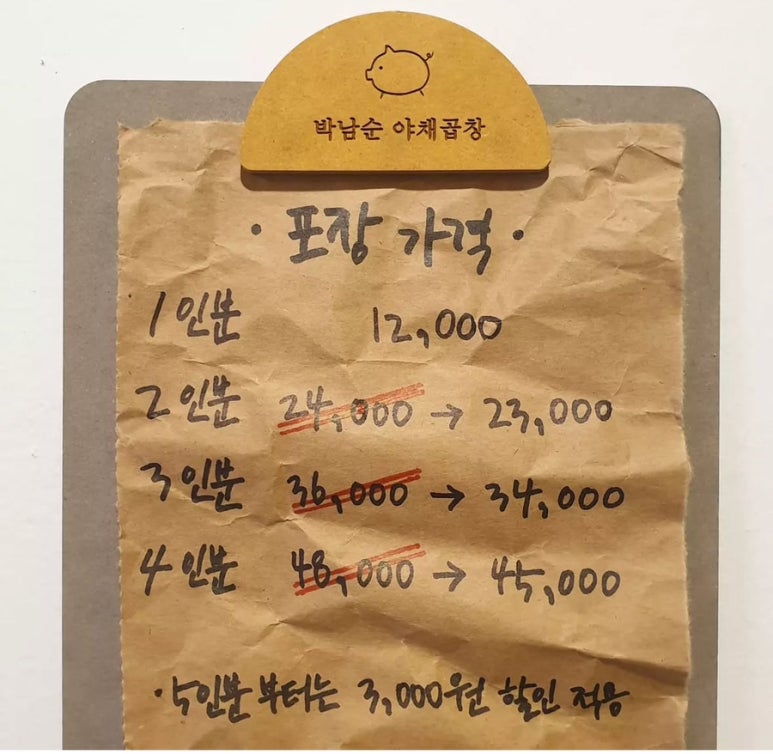 박남순 야채곱창
· 포장 가격 ·
1인분 12,000
2인분 24,000 → 23,000
3인분 36,000 → 34,000
4인분 48,000 → 45,000
· 5인분 부터는 3,000원 할인 적용